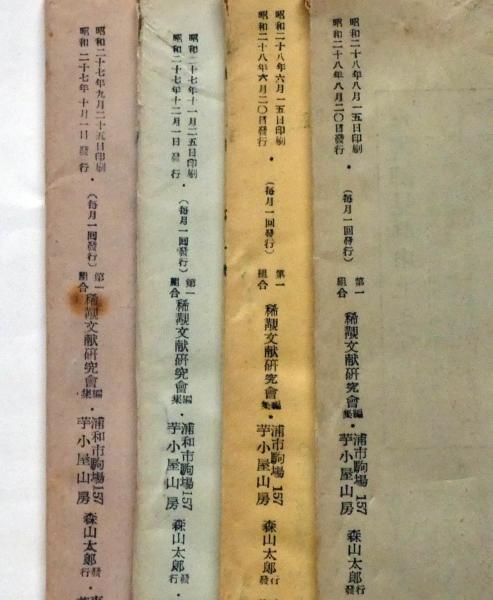 昭和二十八年八月一五日印刷
昭和二十八年八月二〇日發行
・
（每月一回發行）
第一
組合
稀覯文献研究會編集
・
浦市駒場157
芋小屋山房
森山太郎發行
昭和二十八年六月一五日印刷
昭和二十八年六月二〇日發行
・
（每月一回發行）
第一
組合
稀覯文献研究會編集
・
浦市駒場157
芋小屋山房
森山太郎發行
昭和二十七年十一月二五日印刷
昭和二十七年十二月一日發行
・
（每月一回發行）
第一
組合
稀覯文献研究會編集
・
浦和市駒場157
芋小屋山房
森山太郎發行
・
昭和二十七年九月二十五日印刷
昭和二十七年十月一日發行
・
（每月一回發行）
第一
組合
稀覯文献研究會編集
・
浦和市駒場157
芋小屋山房
森山太郎發行
・